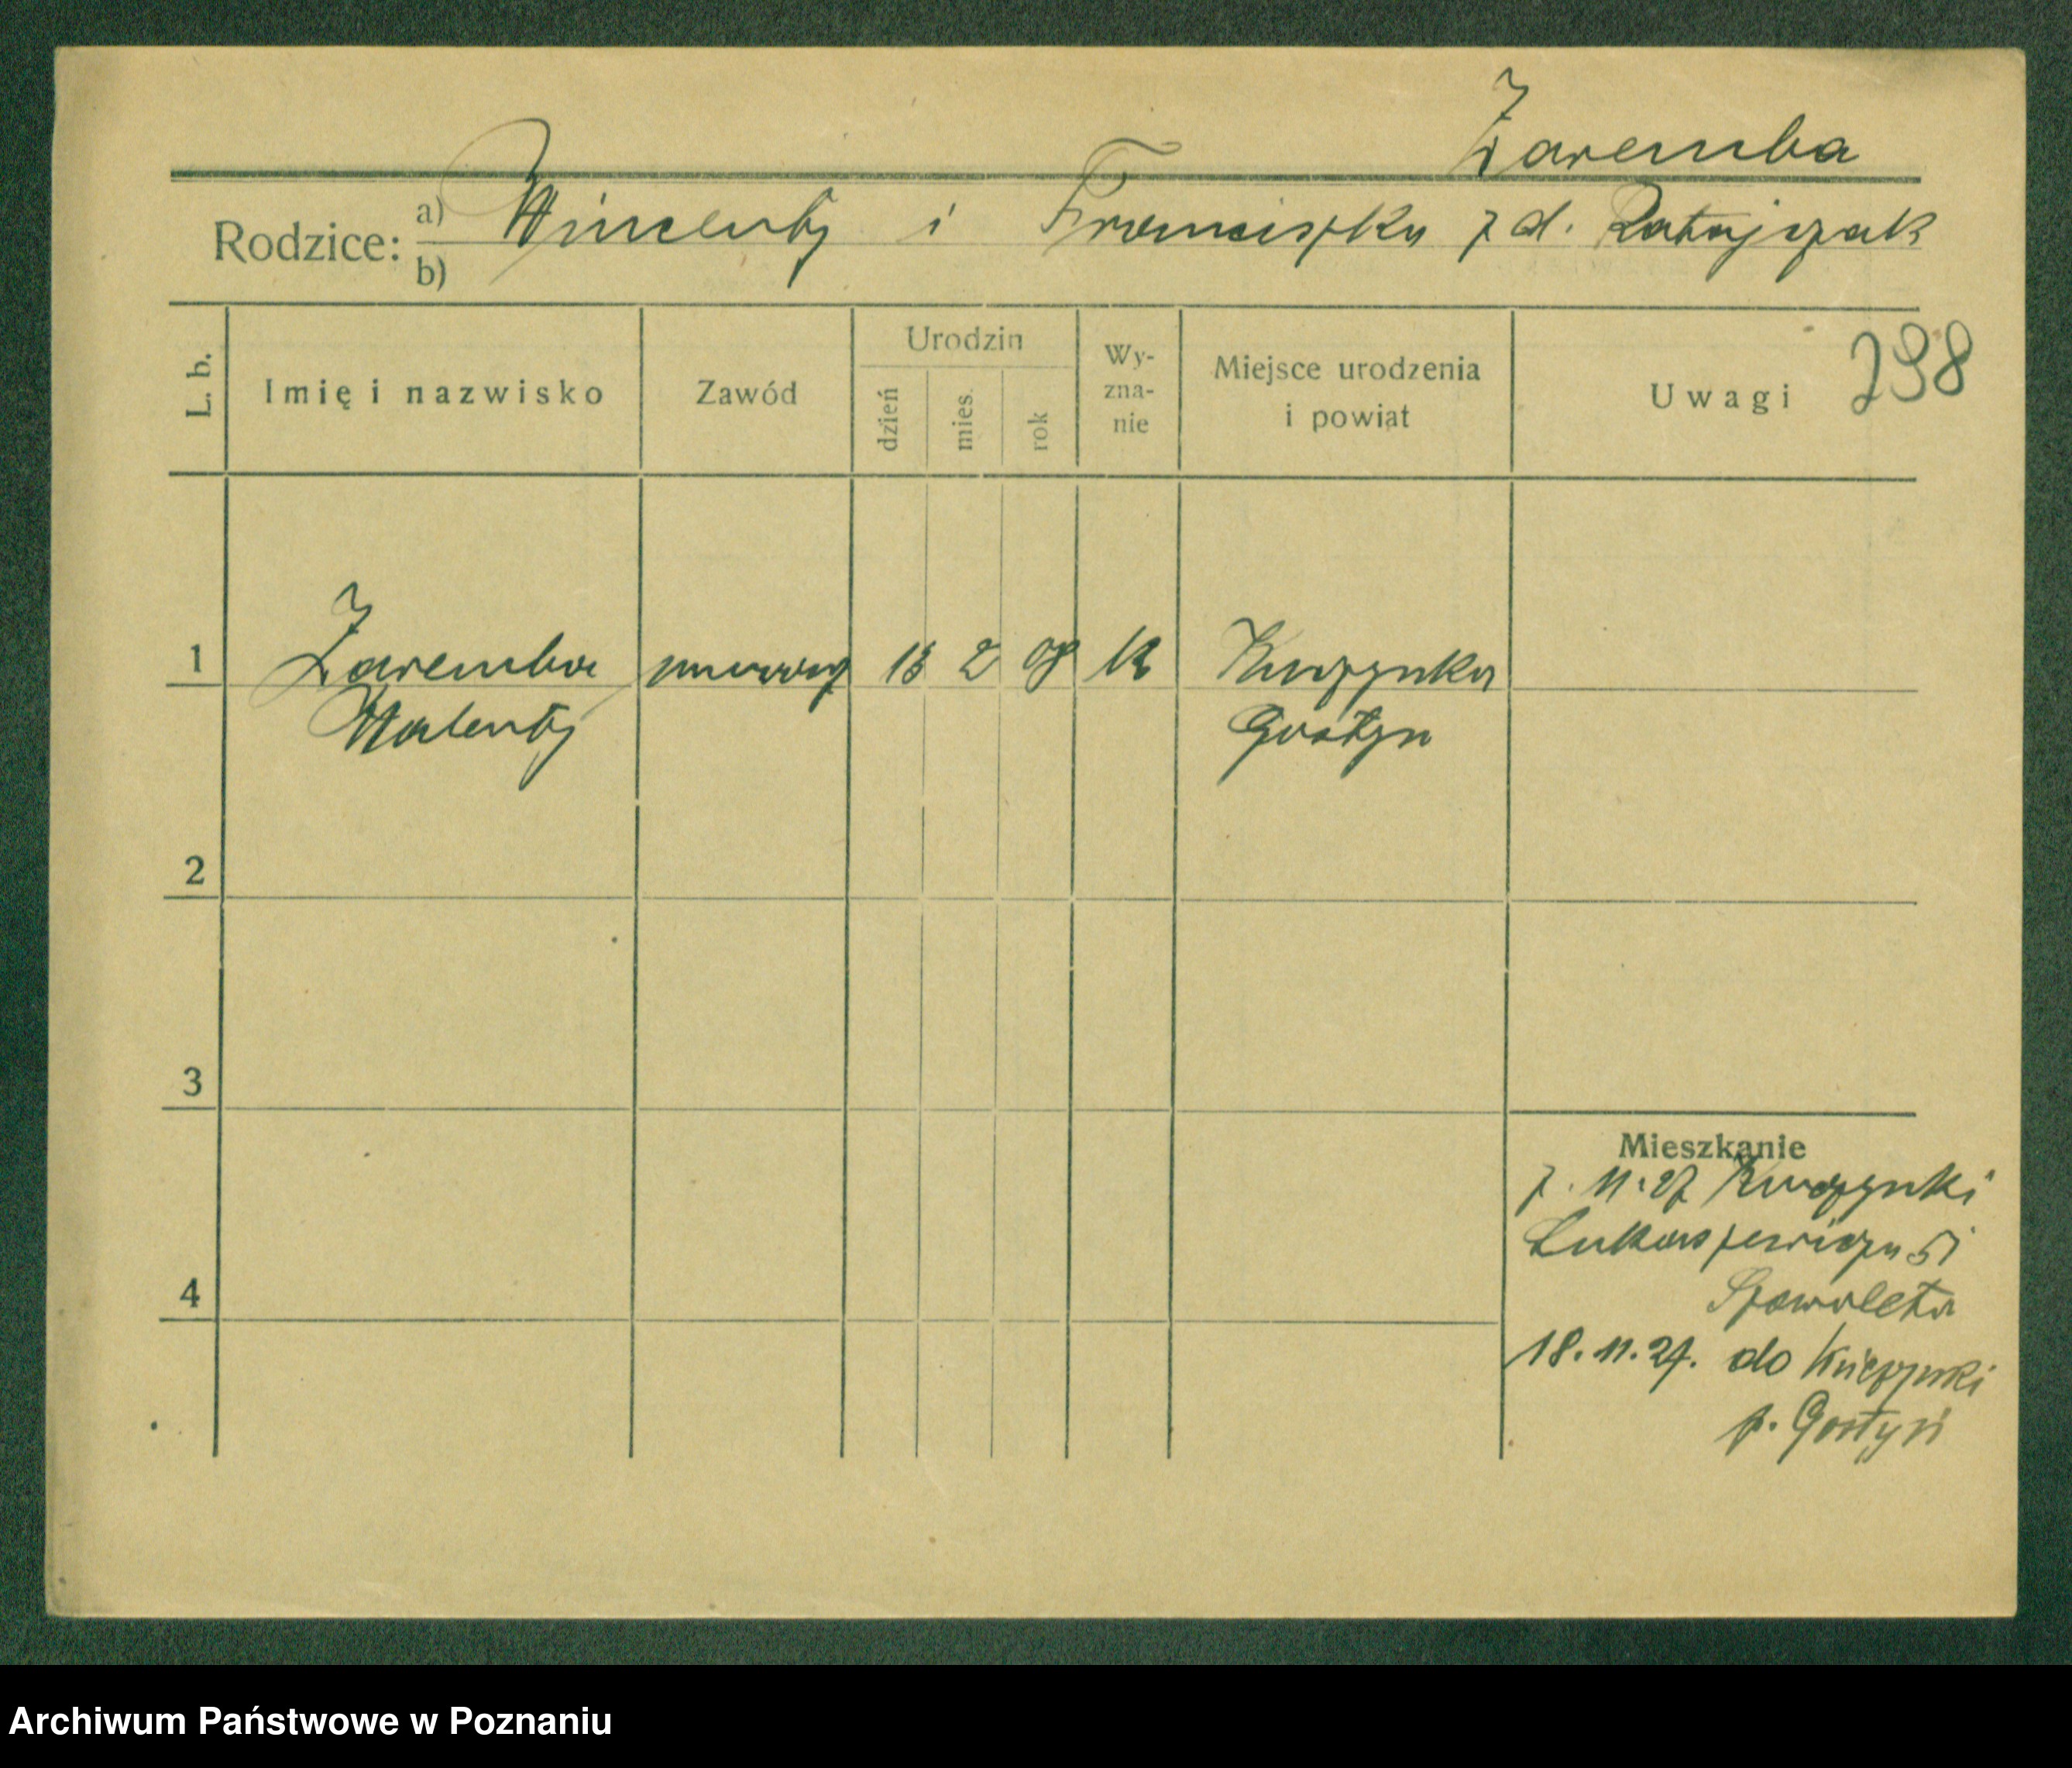 Zaremba
Rodzice: a) Wincenty i Franciszka z d. Ratajczak
b)
L. b.
Imię i nazwisko
Zawód
Urodzin
dzień
mies.
rok
Wy-
zna-
nie
Miejsce urodzenia
i powiat
Uwagi
298
1
Zaremba
Walenty
2 08 k
Gostyn
2
3
4
Mieszkanie
7. 11. 27
Łukaszewicza 51
18. 11. 27. do
p. Gostyń
Archiwum Państwowe w Poznaniu